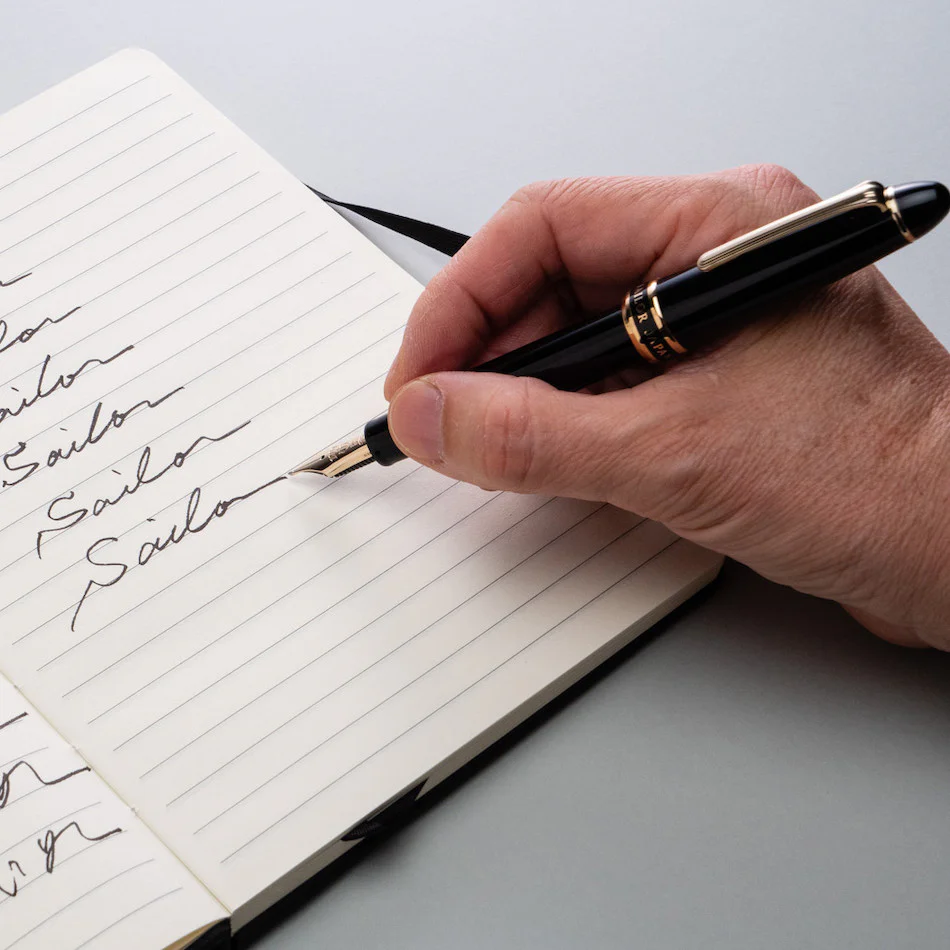 lor
ailor
Sailor
Sailor
Sailor
AILOR JAPA